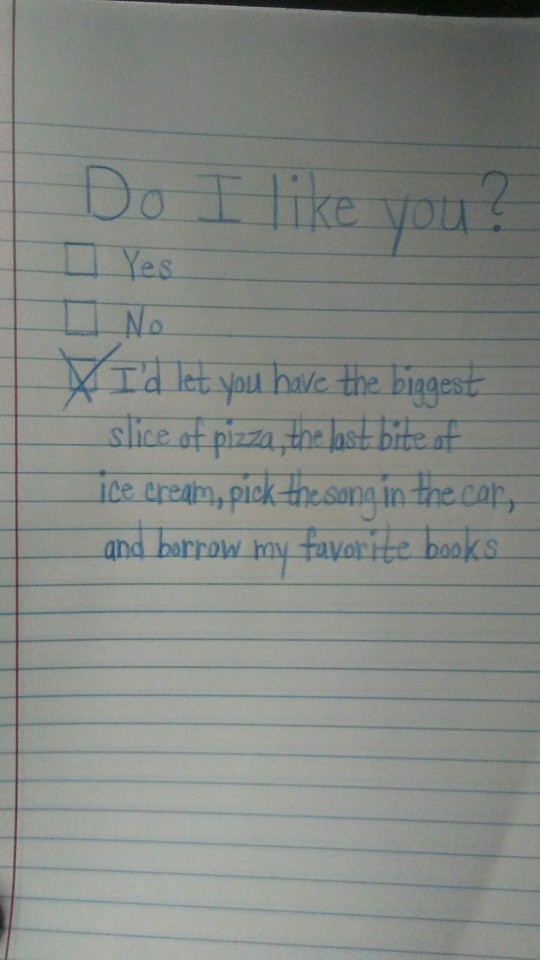 Do I like you?
Yes
No
I'd let you have the biggest
slice of pizza, the last bite of
ice cream, pick the song in the car,
and borrow my favorite books